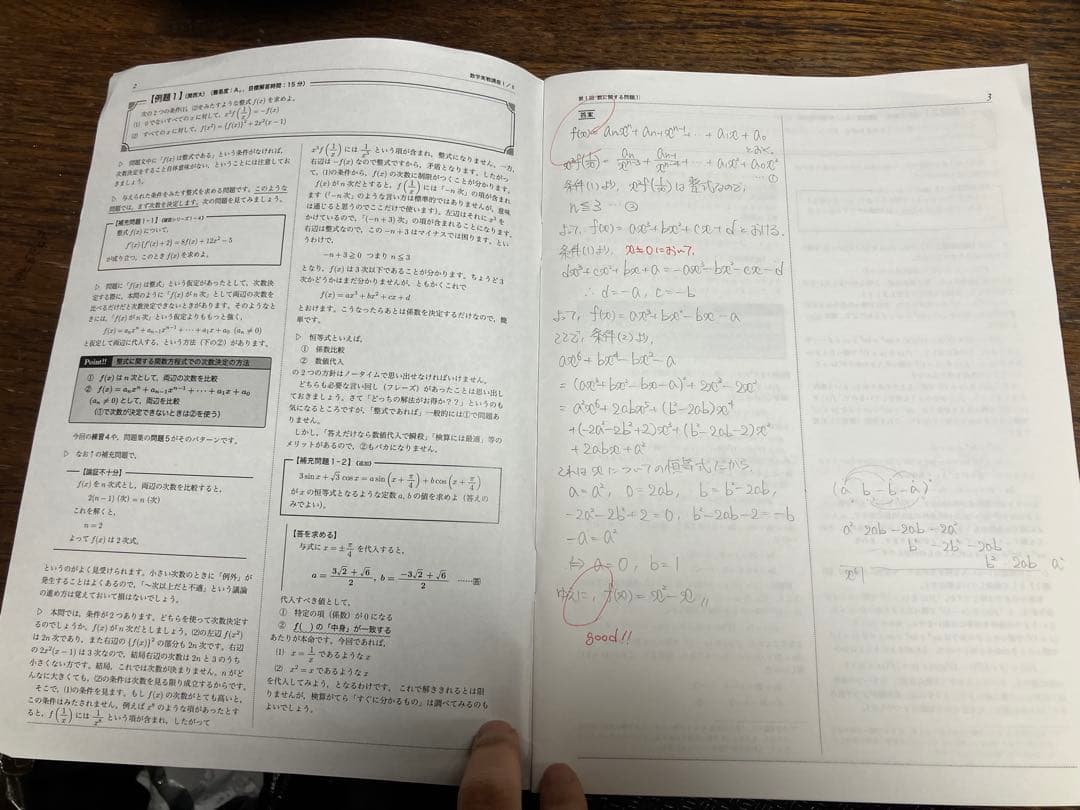 2
数学実戦講座Ⅰ/Ⅱ
【例題1】(関西大)(難易度：A, 目標解答時間：15分)
次の2つの条件(1), (2)をみたすような整式f(x)を求めよ。
(1) 0でないすべてのxに対して, x³f(1/x)=-f(x)
(2) すべてのxに対して, f(x²)={f(x)}²+2x²(x-1)
▷ 問題文中に「f(x)は整式である」という条件がなければ,
次数決定をすること自体意味がない, ということには注意してお
きましょう。
▷ 与えられた条件をみたす整式を求める問題です。このような
問題では, まず次数を決定します。次の問題を見てみましょう。
【補充問題1-1】
整式f(x)について,
f'(x){f'(x)+2}=8f(x)+12x²-5
が成り立つ。このときf(x)を求めよ。
▷ 問題に「f(x)は整式」という仮定があったとして, 次数決
定する際に, 本問のように「f(x)がn次」として両辺の次数を
比べるだけだと次数決定できないときがあります。そのようなと
きには,「f(x)がn次」という仮定よりももっと強く,
f(x)=aₙxⁿ+aₙ₋₁xⁿ⁻¹+⋯+a₁x+a₀ (aₙ≠0)
と仮定して両辺に代入する, という方法(下の②)があります。
Point!! 整式に関する関数方程式での次数決定の方法
① f(x)はn次として, 両辺の次数を比較
② f(x)=aₙxⁿ+aₙ₋₁xⁿ⁻¹+⋯+a₁x+a₀
(aₙ≠0)として, 両辺を比較
(①で次数が決定できないときは②を使う)
今回の練習4や, 問題集の問題5がそのパターンです。
▷ なお↑の補充問題で,
【論証不十分】
f(x)をn次式とし, 両辺の次数を比較すると,
2(n-1)(次)=n(次)
これを解くと,
n=2
よってf(x)は2次式。
というのがよく見受けられます。小さい次数のときに「例外」が
発生することはよくあるので,「〜次以上だと不適」という議論
の進め方は覚えておいて損はないでしょう。
▷ 本問では, 条件が2つあります。どちらを使って次数決定す
るのでしょうか。f(x)がn次だとしましょう。(2)の左辺f(x²)
は2n次であり, また右辺の{f(x)}²の部分も2n次です。右辺
の2x²(x-1)は3次なので, 結局右辺の次数は2nと3のうち
小さくない方です。結局, これでは次数が決まりません。nがど
んなに大きくても, (2)の条件は次数を見る限り成立するからです。
そこで, (1)の条件を見ます。もしf(x)の次数がとても高いと,
この条件はみたされません。例えばx⁸のような項があったとす
ると, f(1/x)には1/x⁸という項が含まれ, したがって
x³f(1/x)には1/x⁵という項が含まれ, 整式になりません。一方,
右辺は-f(x)なので整式ですから, 矛盾となります。したがっ
て, (1)の条件から, f(x)の次数に制限がつくことが分かります。
f(x)がn次だとすると, f(1/x)には「-n次」の項が含まれ
ます(「-n次」のような言い方は標準的ではありませんが, 意味
は通じると思うのでここだけで使います)。左辺はそれにx³を
かけているので,「(-n+3)次」の項が含まれることになります。
右辺は整式なので, この-n+3はマイナスでは困ります。とい
うわけで,
-n+3≧0 つまり n≦3
となり, f(x)は3次以下であることが分かります。ちょうど3
次かどうかはまだ分かりませんが, ともかくこれで
f(x)=ax³+bx²+cx+d
とおけます。こうなったらあとは係数を決定するだけなので, 簡
単です。
▷ 恒等式といえば,
① 係数比較
② 数値代入
の2つの方針はノータイムで思い出せなければいけません。
どちらも必要な言い回し(フレーズ)があったことは思い出し
ておきましょう。さて「どっちの解法がお得か??」というのも
気になるところですが,「整式であれば」一般的には①で問題あ
りません。
しかし,「答えだけなら数値代入で瞬殺」「検算には最適」等の
メリットがあるので, ②もバカになりません。
【補充問題1-2】
3sinx+√3cosx=asin(x+π/4)+bcos(x+π/4)
がxの恒等式となるような定数a, bの値を求めよ(答えの
みでよい)。
【答を求める】
与式にx=±π/4を代入すると,
a=(3√2+√6)/2, b=(-3√2+√6)/2 ……答
代入すべき値として,
① 特定の項(係数)が0になる
② f( )の「中身」が一致する
あたりが本命です。今回であれば,
(1) x=1/xであるようなx
(2) x²=xであるようなx
を代入してみよう, となるわけです。これで解ききれるとは限
りませんが, 検算がてら「すぐに分かるもの」は調べてみるのも
よいでしょう。
第1回 数に関する問題(1)
3
答案
f(x)=aₙxⁿ+aₙ₋₁xⁿ⁻¹+⋯+a₁x+a₀
とおく。
x³f(1/x)=aₙ/xⁿ⁻³+aₙ₋₁/xⁿ⁻⁴+⋯+a₁x²+a₀x³
…①
条件(1)より, x³f(1/x)は整式なので,
n≦3 …②
よって, f(x)=ax³+bx²+cx+dとおける.
条件(1)より, x≠0において,
dx³+cx²+bx+a=-ax³-bx²-cx-d
∴ d=-a, c=-b
よって, f(x)=ax³+bx²-bx-a
ここで, 条件(2)より,
ax⁶+bx⁴-bx²-a
=(ax³+bx²-bx-a)²+2x³-2x²
=a²x⁶+2abx⁵+(b²-2ab)x⁴
+(-2a²-2b²+2)x³+(b²-2ab-2)x²
+2abx+a²
これはxについての恒等式だから,
a=a², 0=2ab, b=b²-2ab,
-2a²-2b²+2=0, b²-2ab-2=-b
-a=a²
⇔ a=0, b=1
ゆえに, f(x)=x²-x〃
good!!
(a b -b -a)²
a² 2ab -2ab -2a²
b² -2b² -2ab
b² 2ab a²
x⁶